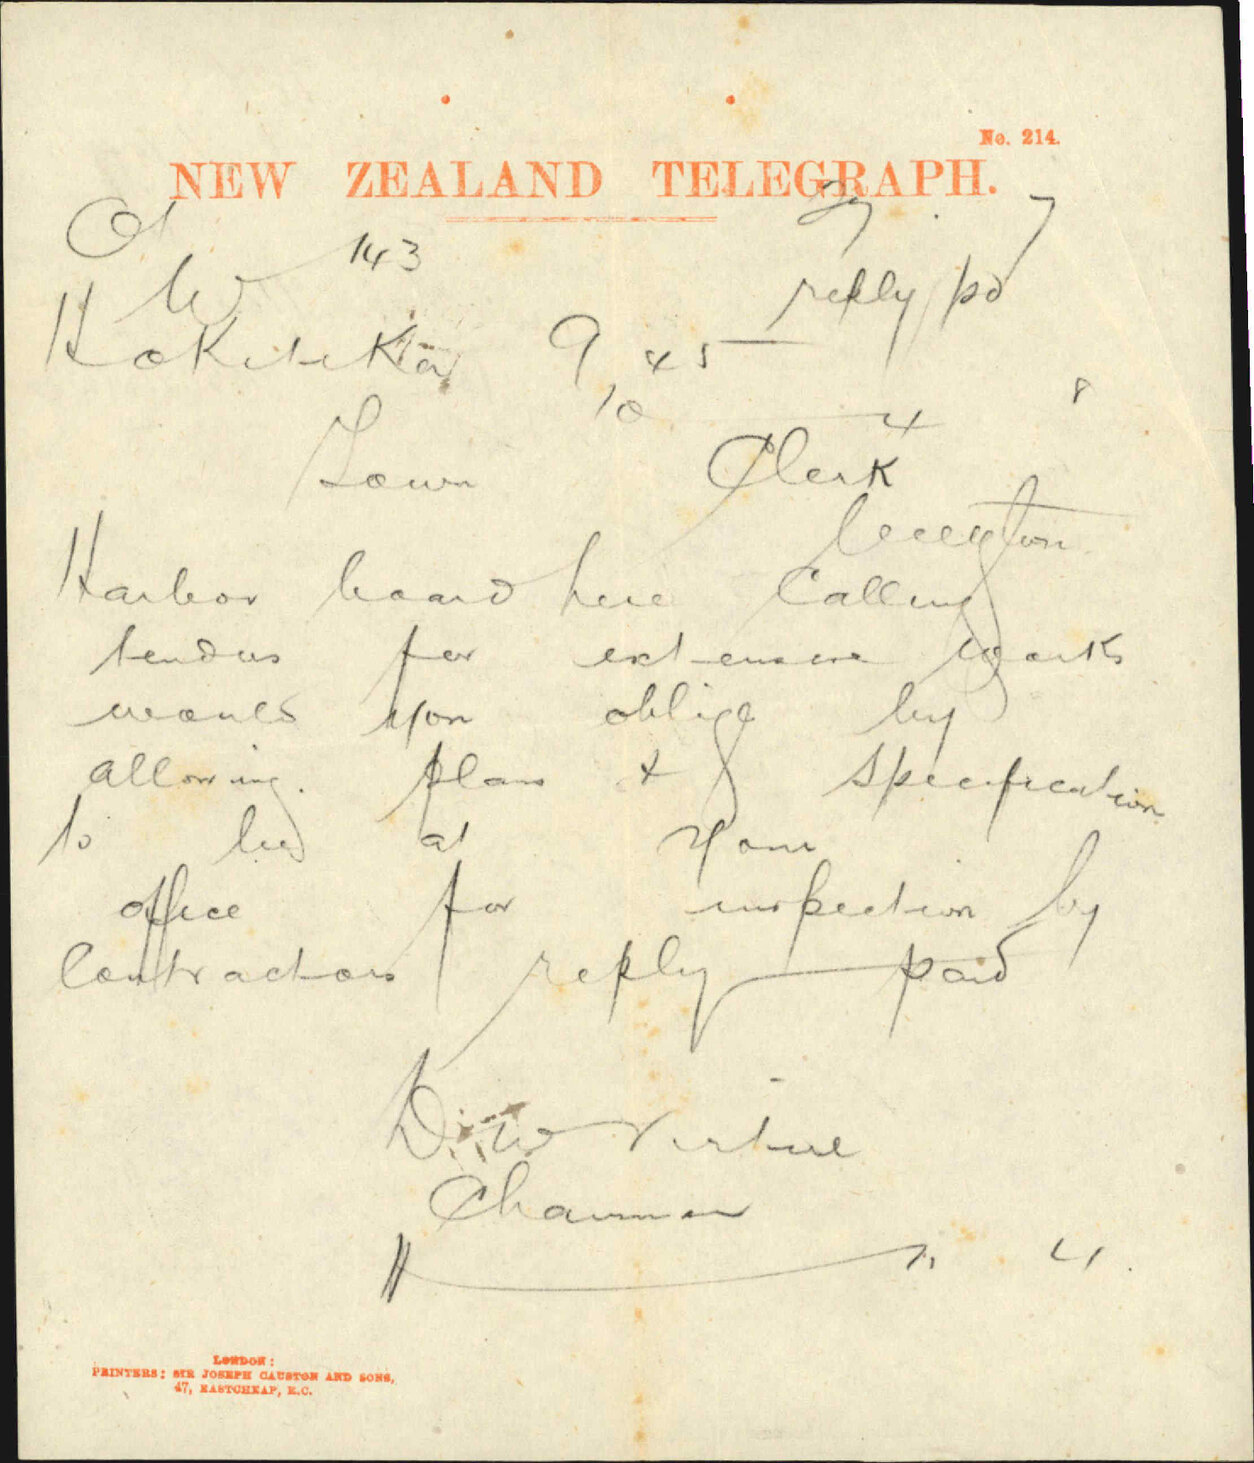 No. 214.
NEW ZEALAND TELEGRAPH.
27. 7
W 143
reply pd
Hokitika 9,45
10 4 8
Town Clerk
Harbor board here Calling
tenders for extensive works
would you oblige by
allowing. plans & specification
to be at your
office for inspection by
Contractors reply paid
D. W Virtue
Chairman
LONDON:
PRINTERS: SIR JOSEPH CAUSTON AND SONS,
47, EASTCHEAP, E.C.